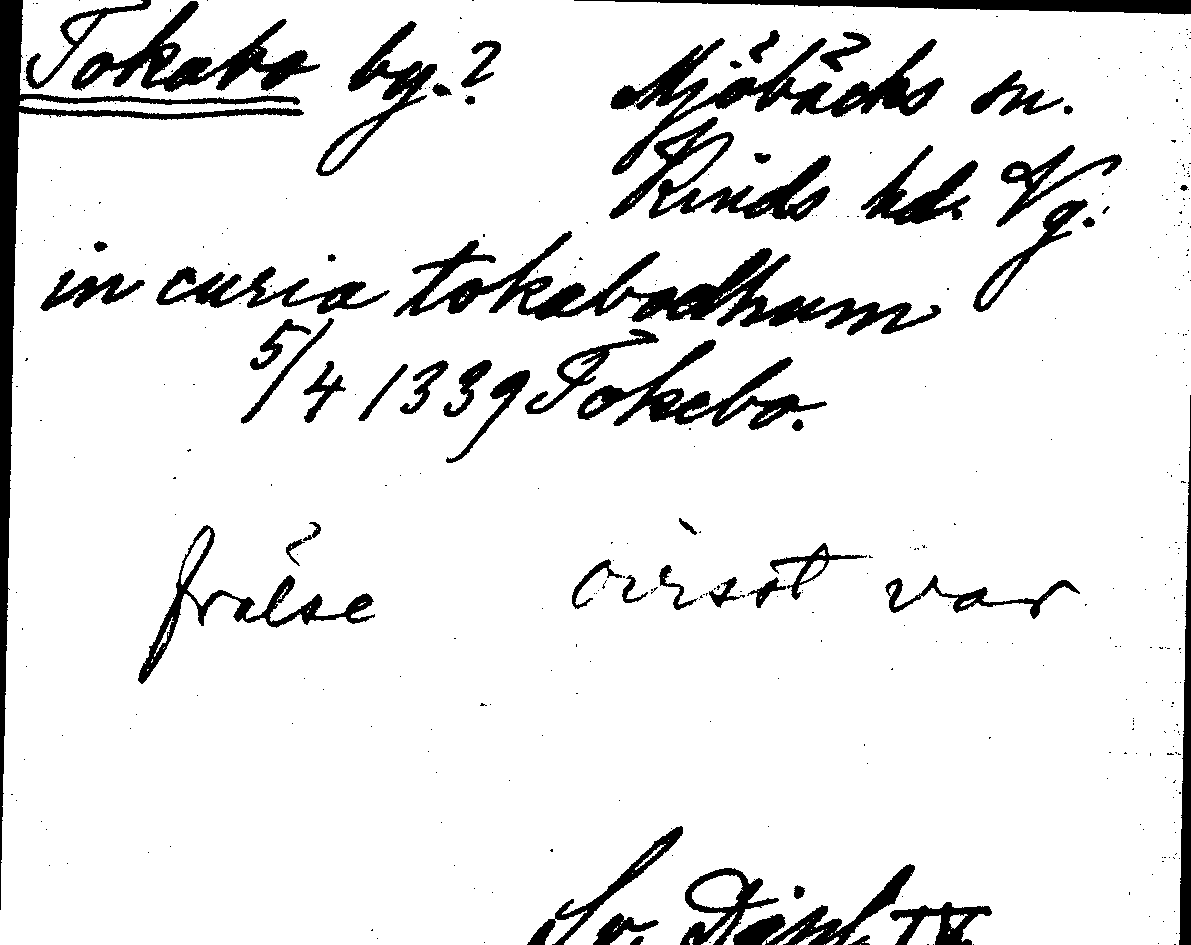 Tokabo bg.? Mjöbäcks sn.
Kinds hd. Vg.
in curia tokabodhum
5/4 1339 Tokebo.
frälse ovisst var
Sv. Dipl. IV